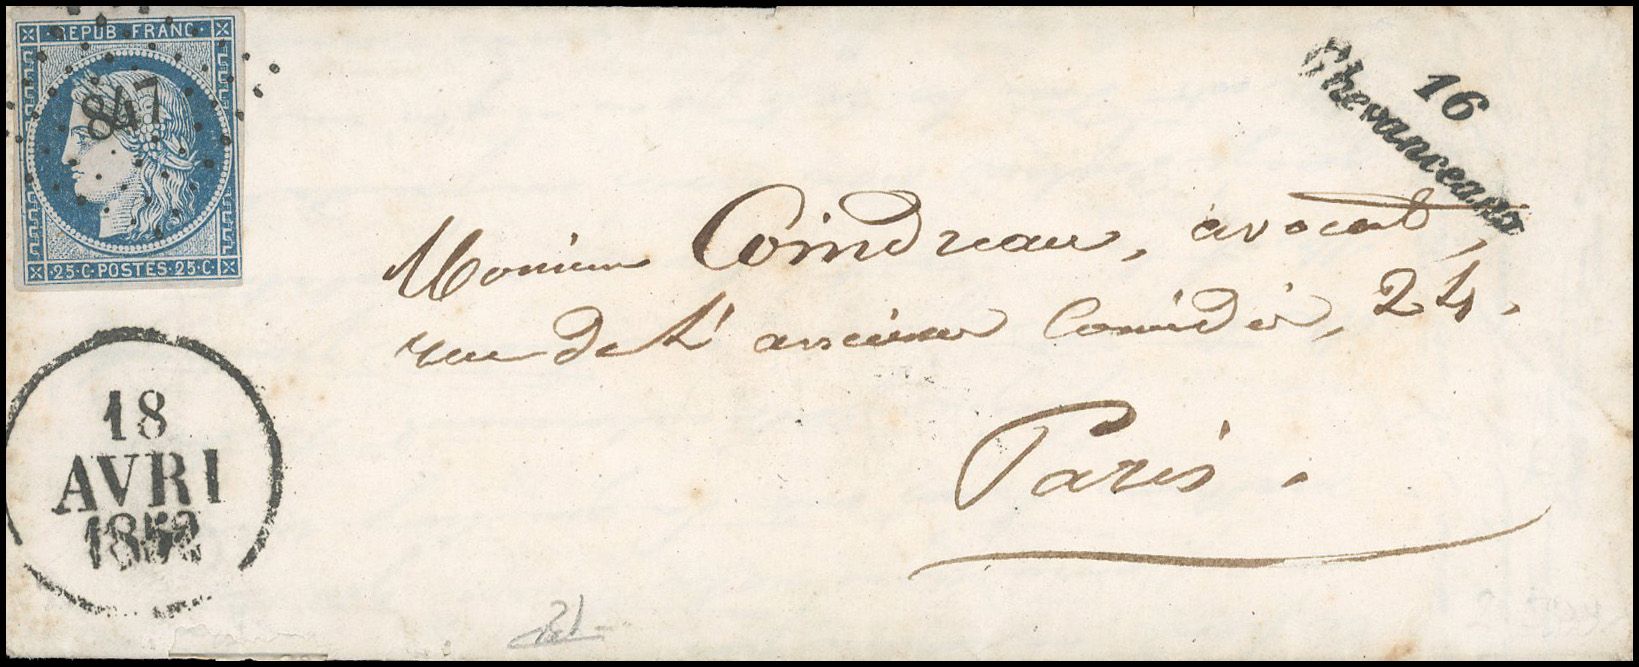 REPUB·FRANC·
847
25·C·POSTES·25·C·
16
Chevanceaux
Monsieur Coindreau, avocat,
rue de l'ancienne Comédie, 24.
Paris.
18
AVRI
1852